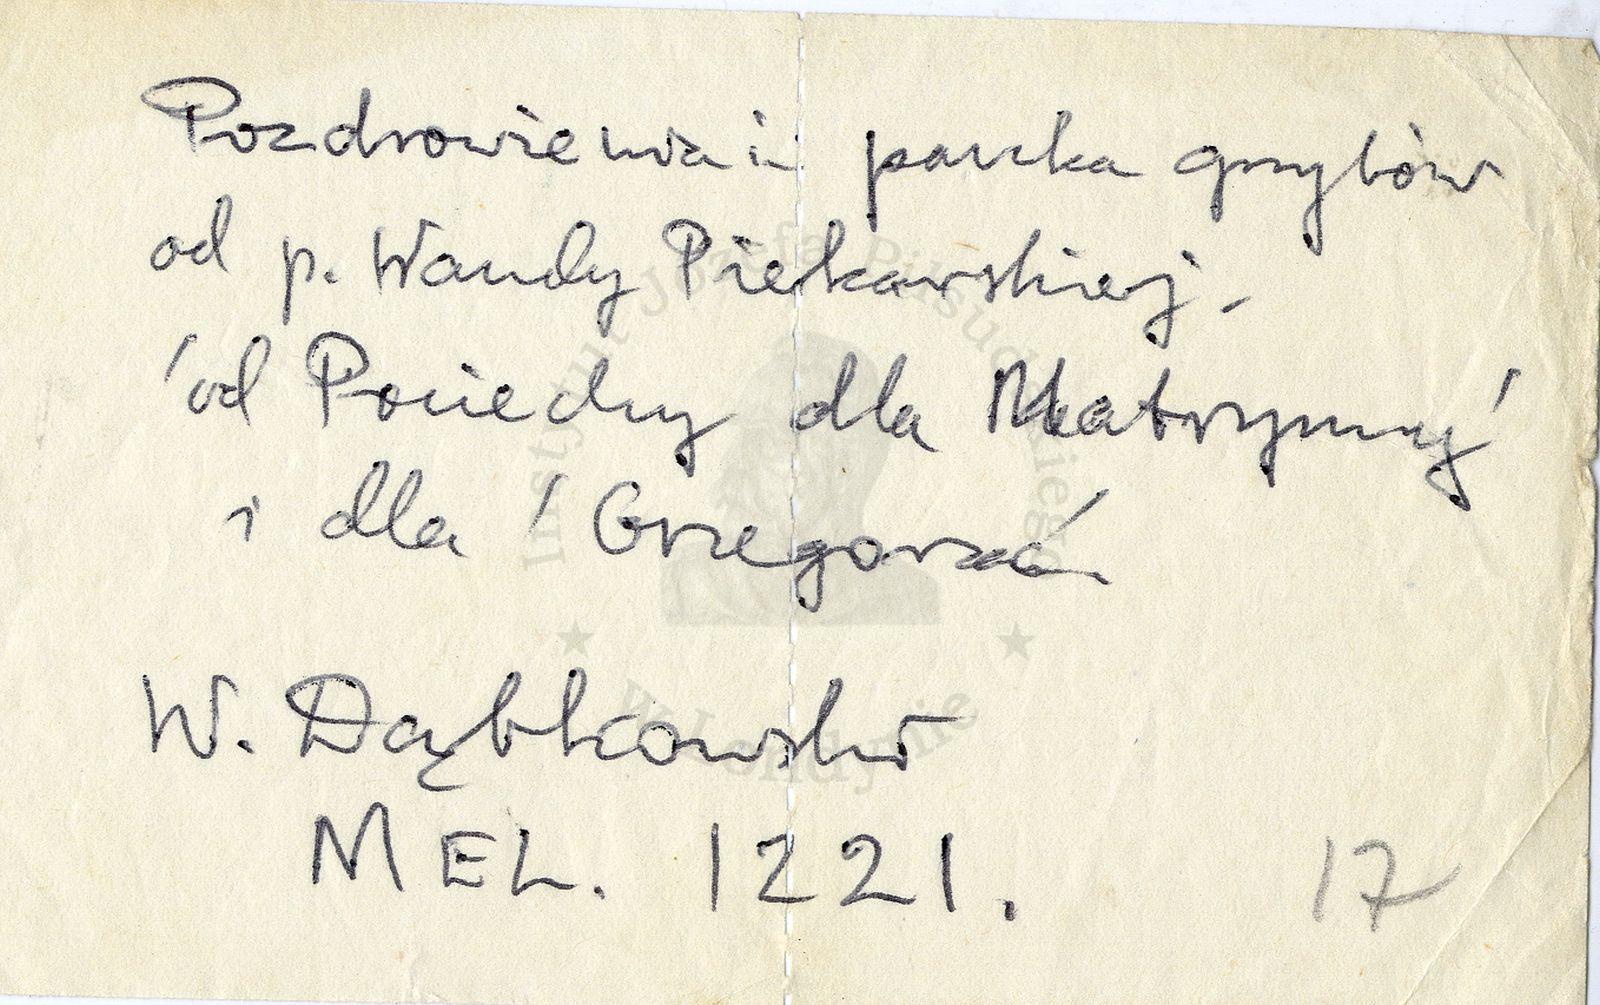 Pozdrowienia i paczka grzybów
od p. Wandy Piekarskiej,
'od Pociechy dla Matrymy'
i dla 'Grzegorza'.
W. Dąbkowski
MEL. 1221.
17
Instytut Józefa Piłsudskiego
w Londynie